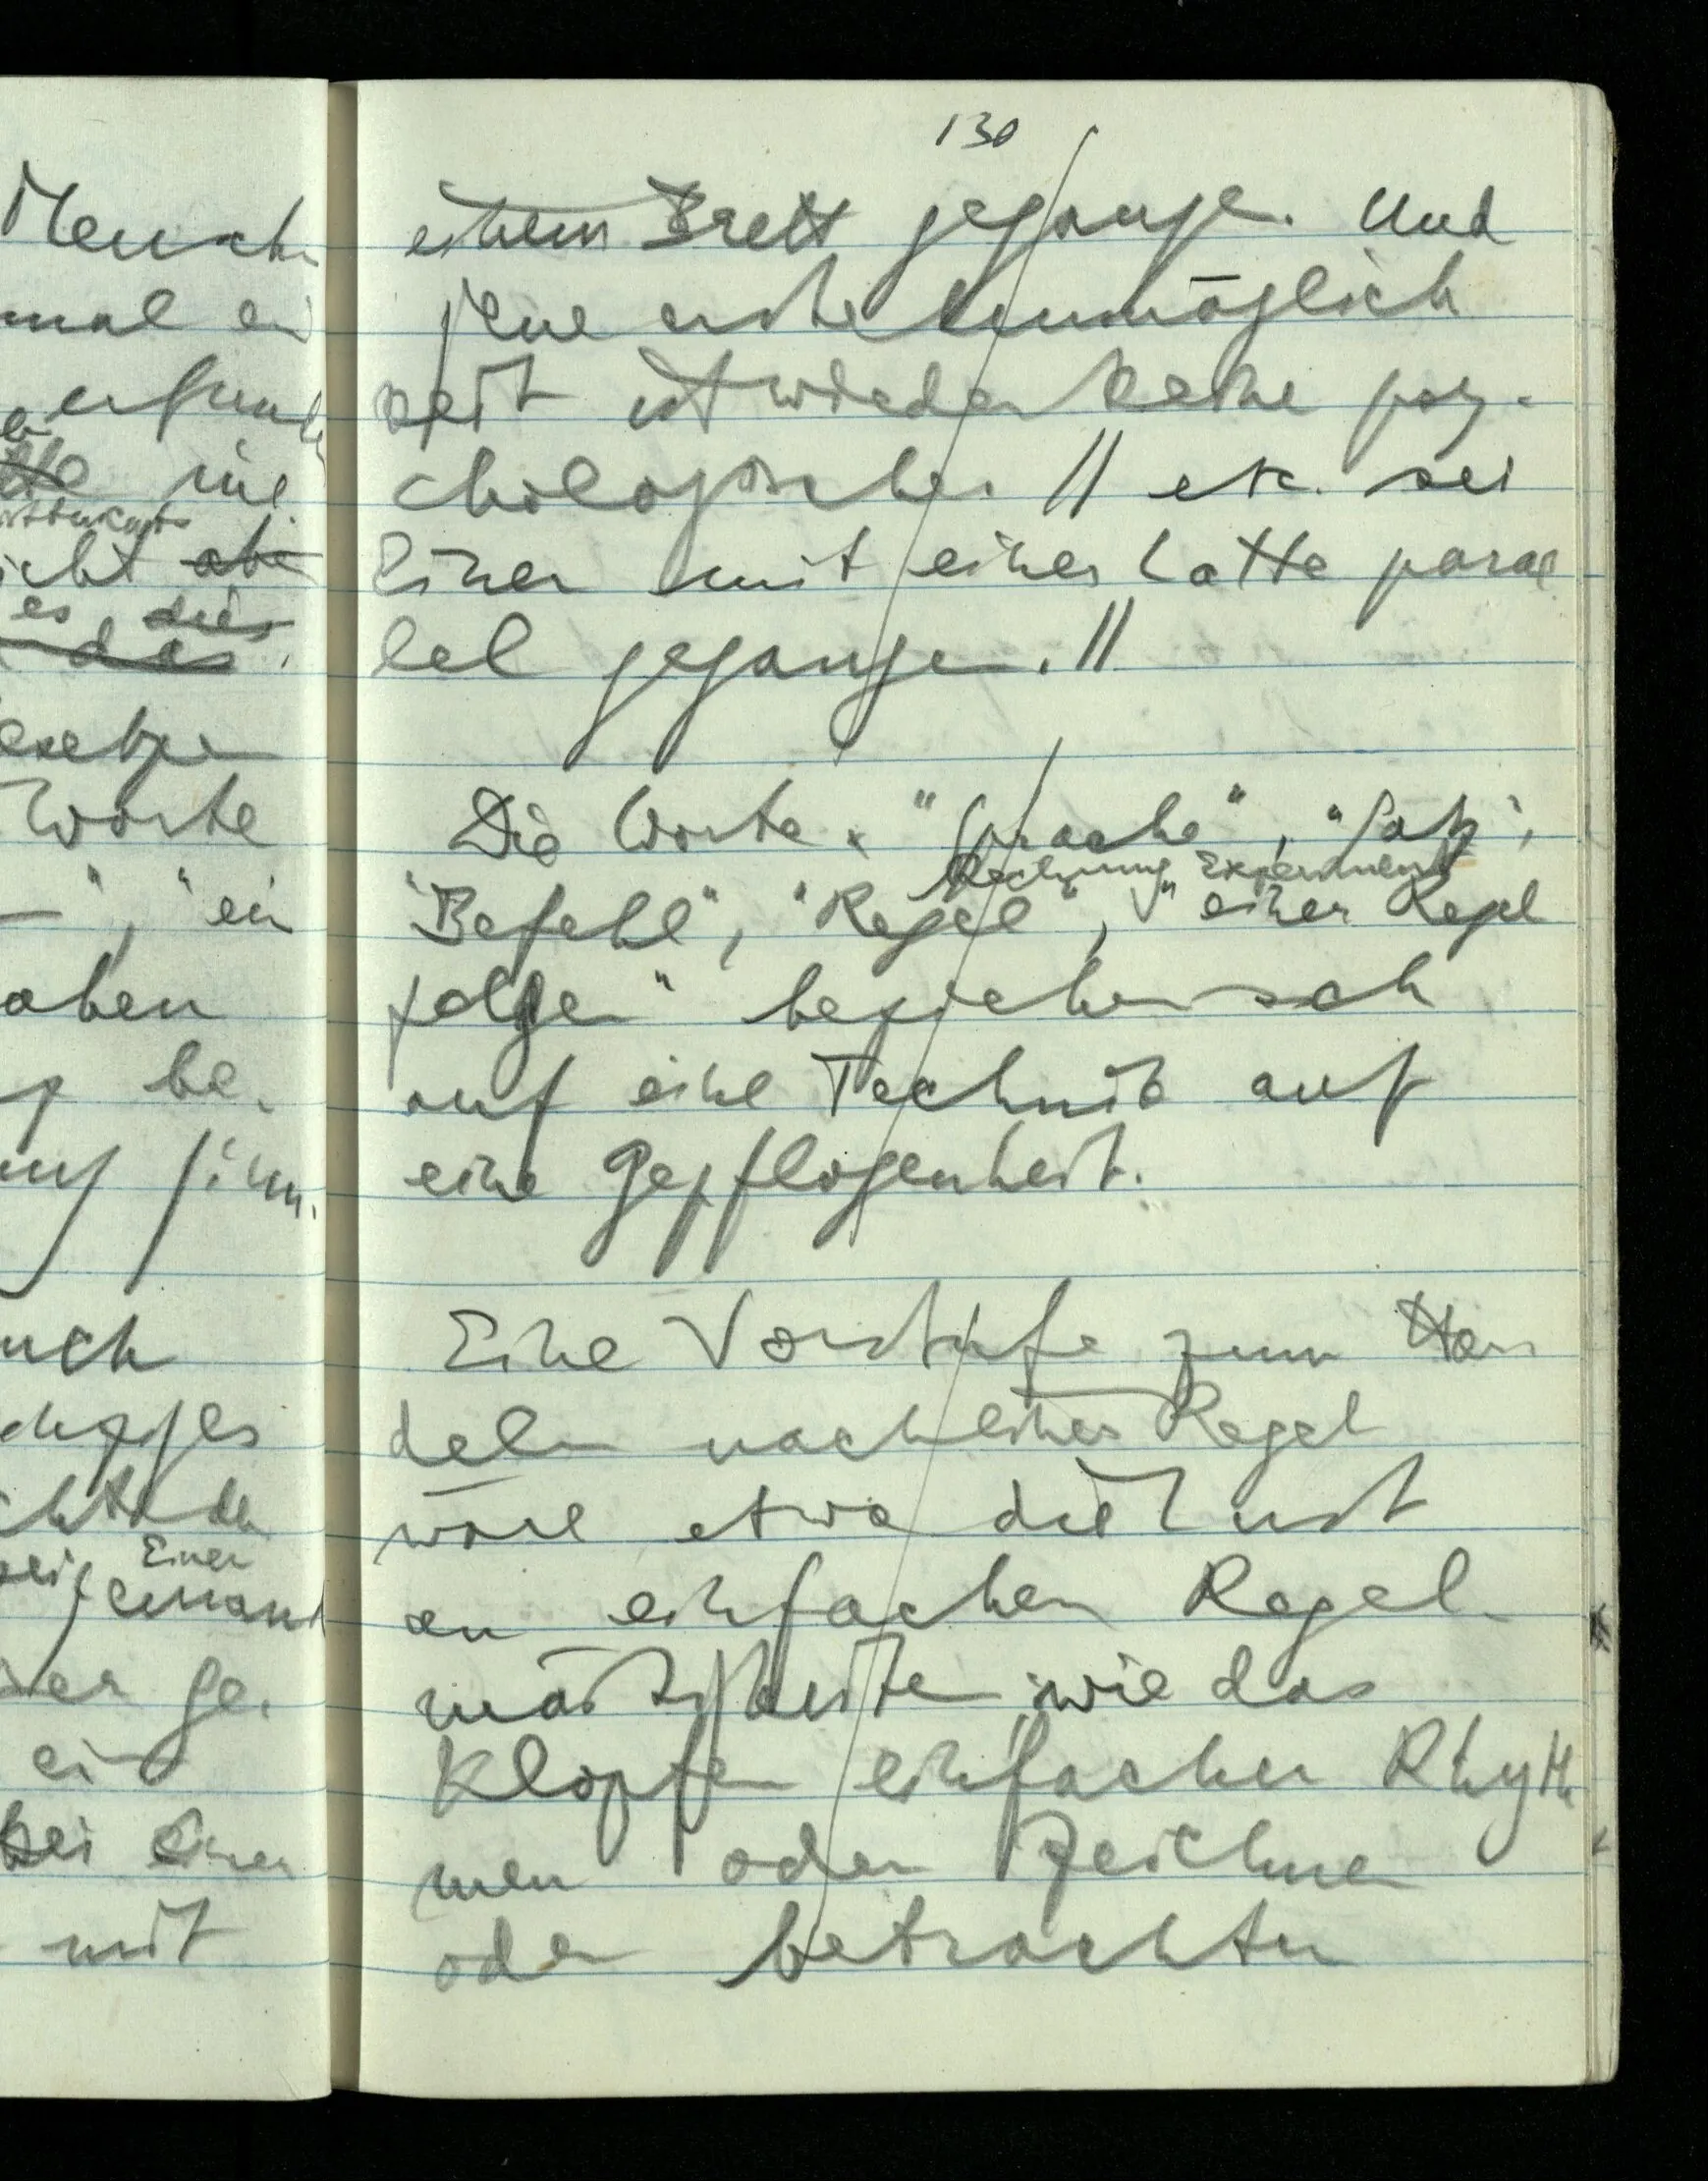 Mensch
mal ei
erfund
nie
icht abe
es, dies
das
Worte
", "ein
aben
be-
uch
Einer
jemand
ge-
ein
bei Einer
mit
130
einem Brett gegangen. Und
jene erste Unmöglich
keit ist wieder keine psy-
chologische. // etc. sei
Einer mit einer Latte paral
lel gegangen. //
Die Worte "Sprache", "Satz",
Rechnung Experiment
"Befehl", "Regel", "einer Regel
folgen" beziehen sich
auf eine Technik auf
eine Gepflogenheit.
Eine Vorstufe zum Han
deln nach einer Regel
wäre etwa die Lust
an einfachen Regel-
mäßigkeiten wie das
Klopfen einfacher Rhyth
men oder Zeichnen
oder betrachten